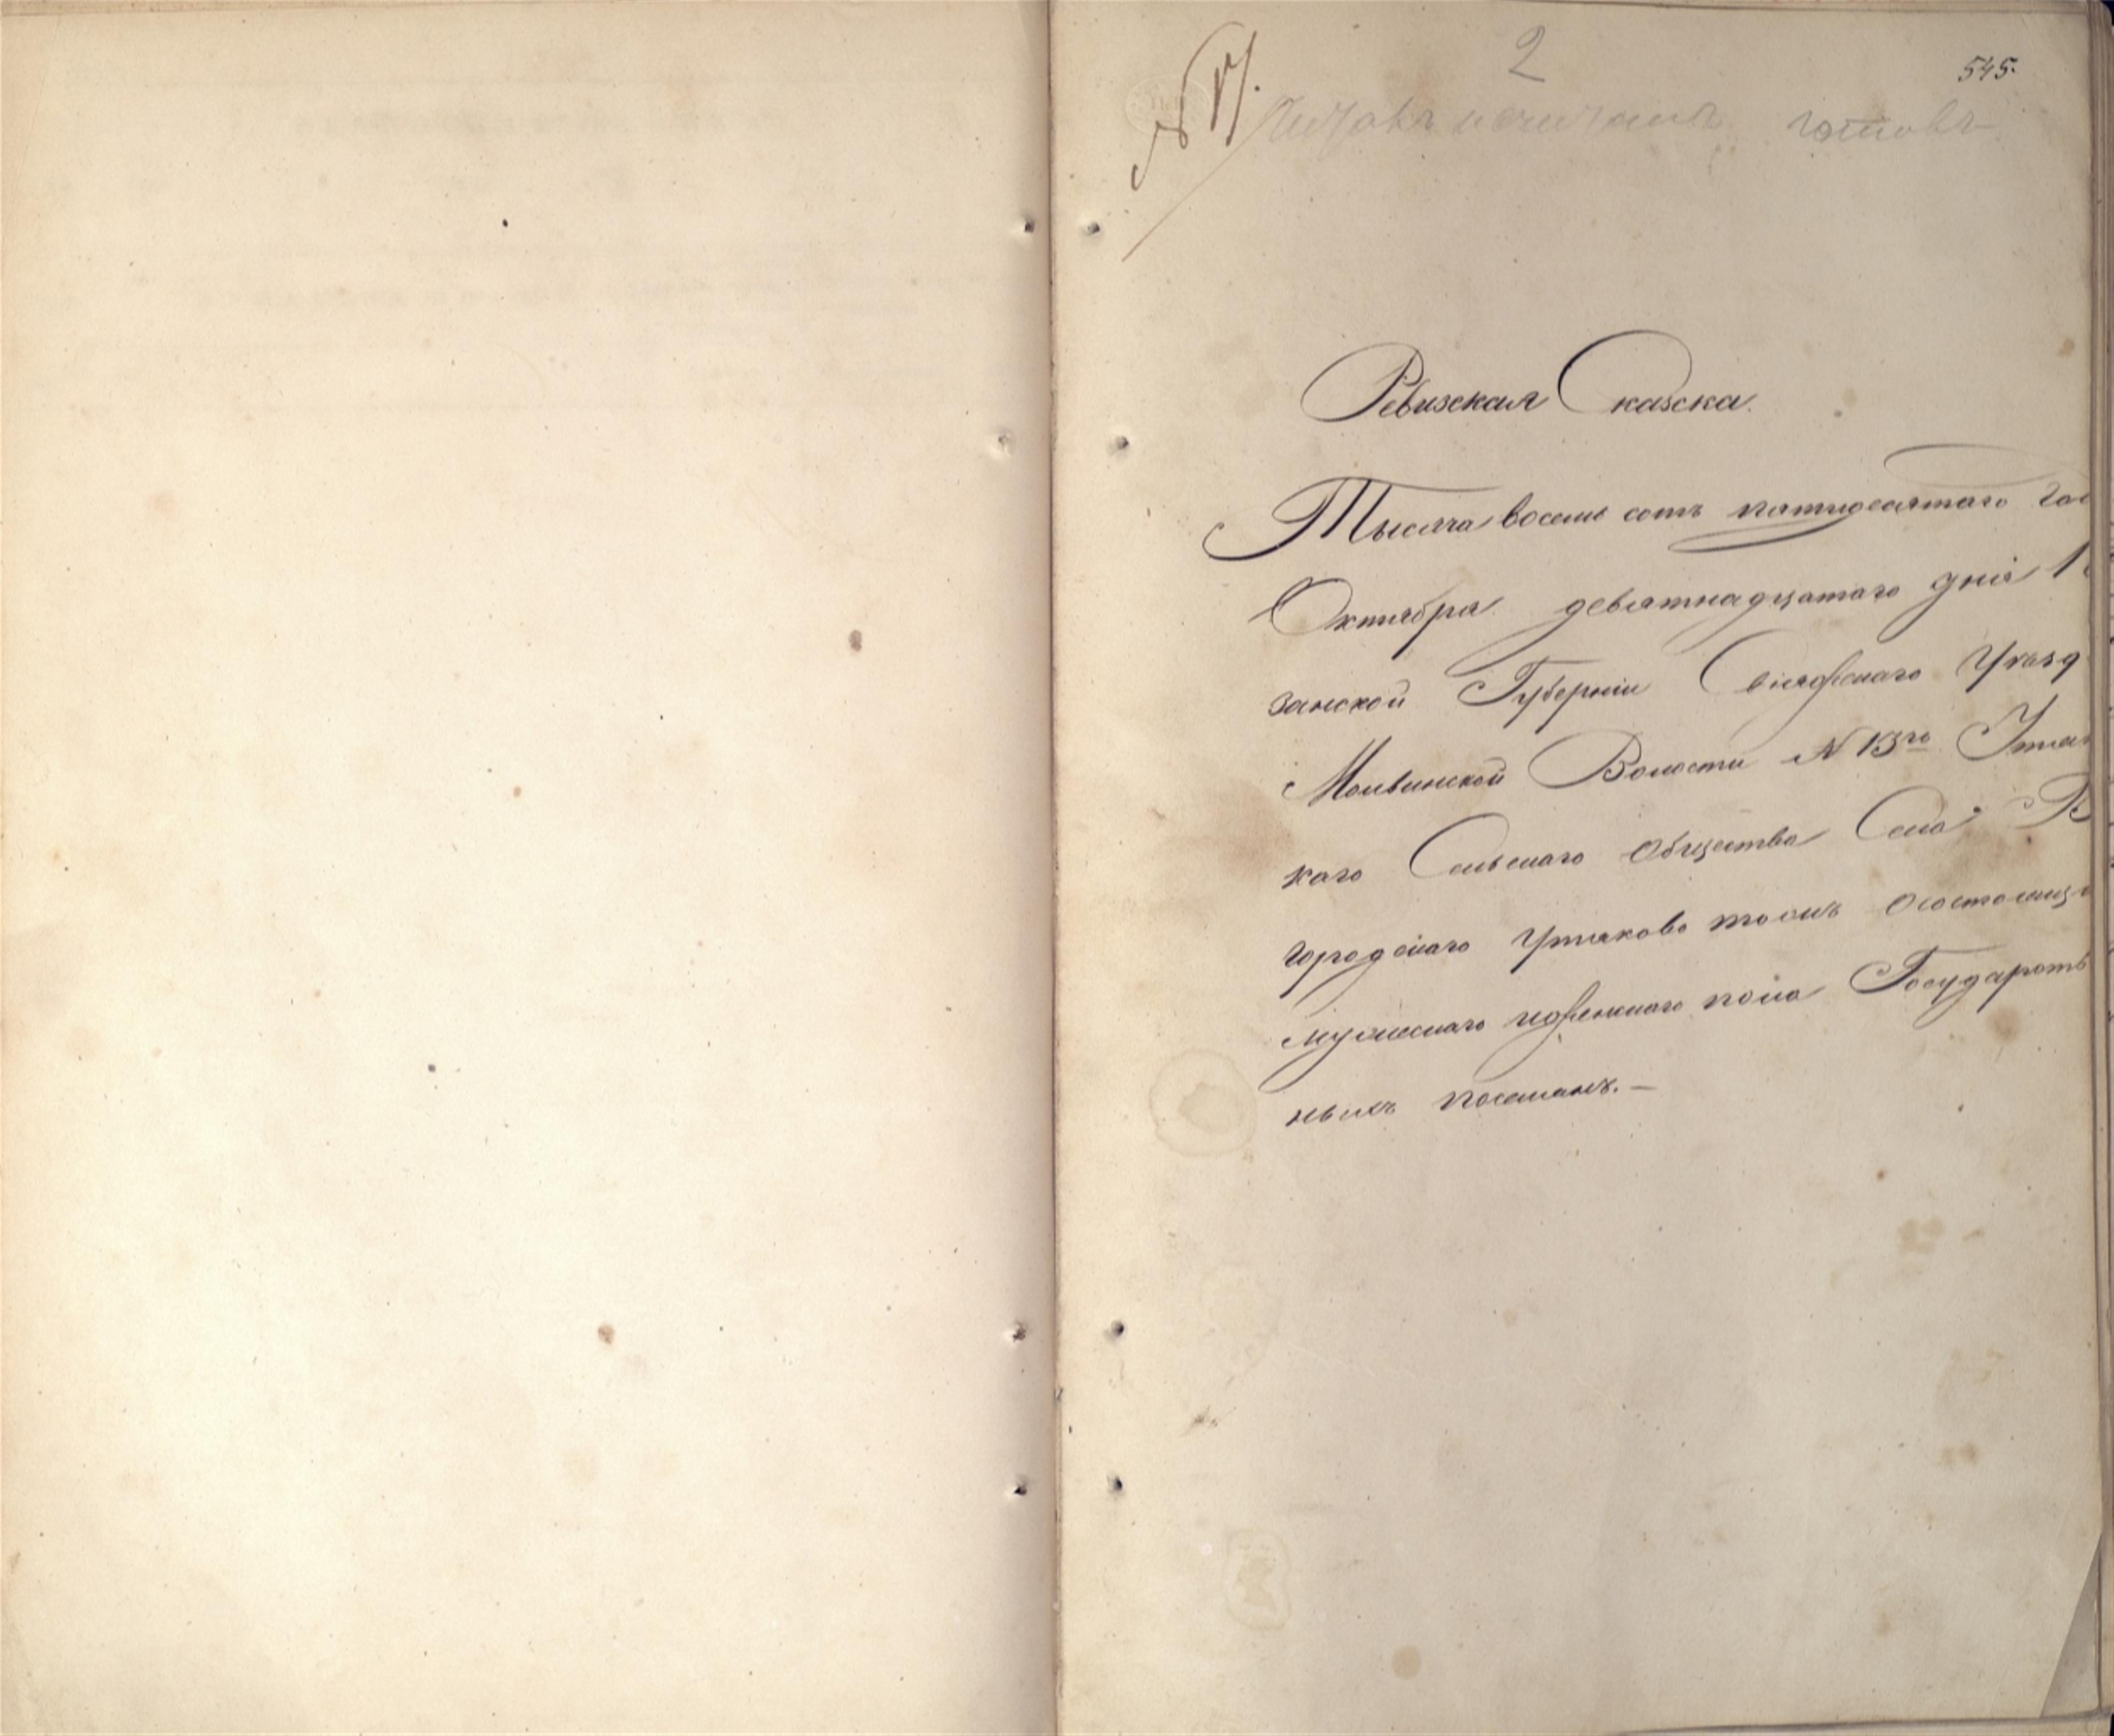 2
545.
№ 17.
готовъ
Ревизская Сказка.
Тысяча восемь сотъ пятидесятаго го
Октября девятнадцатаго дня
занской Губерніи Свіяжскаго Уезд
Молвинской Волости № 13го Утяк
каго Сельскаго Общества Села
городскаго Утяково тожъ о состоящи
мужескаго и женскаго пола Государств
ныхъ поселянъ.—